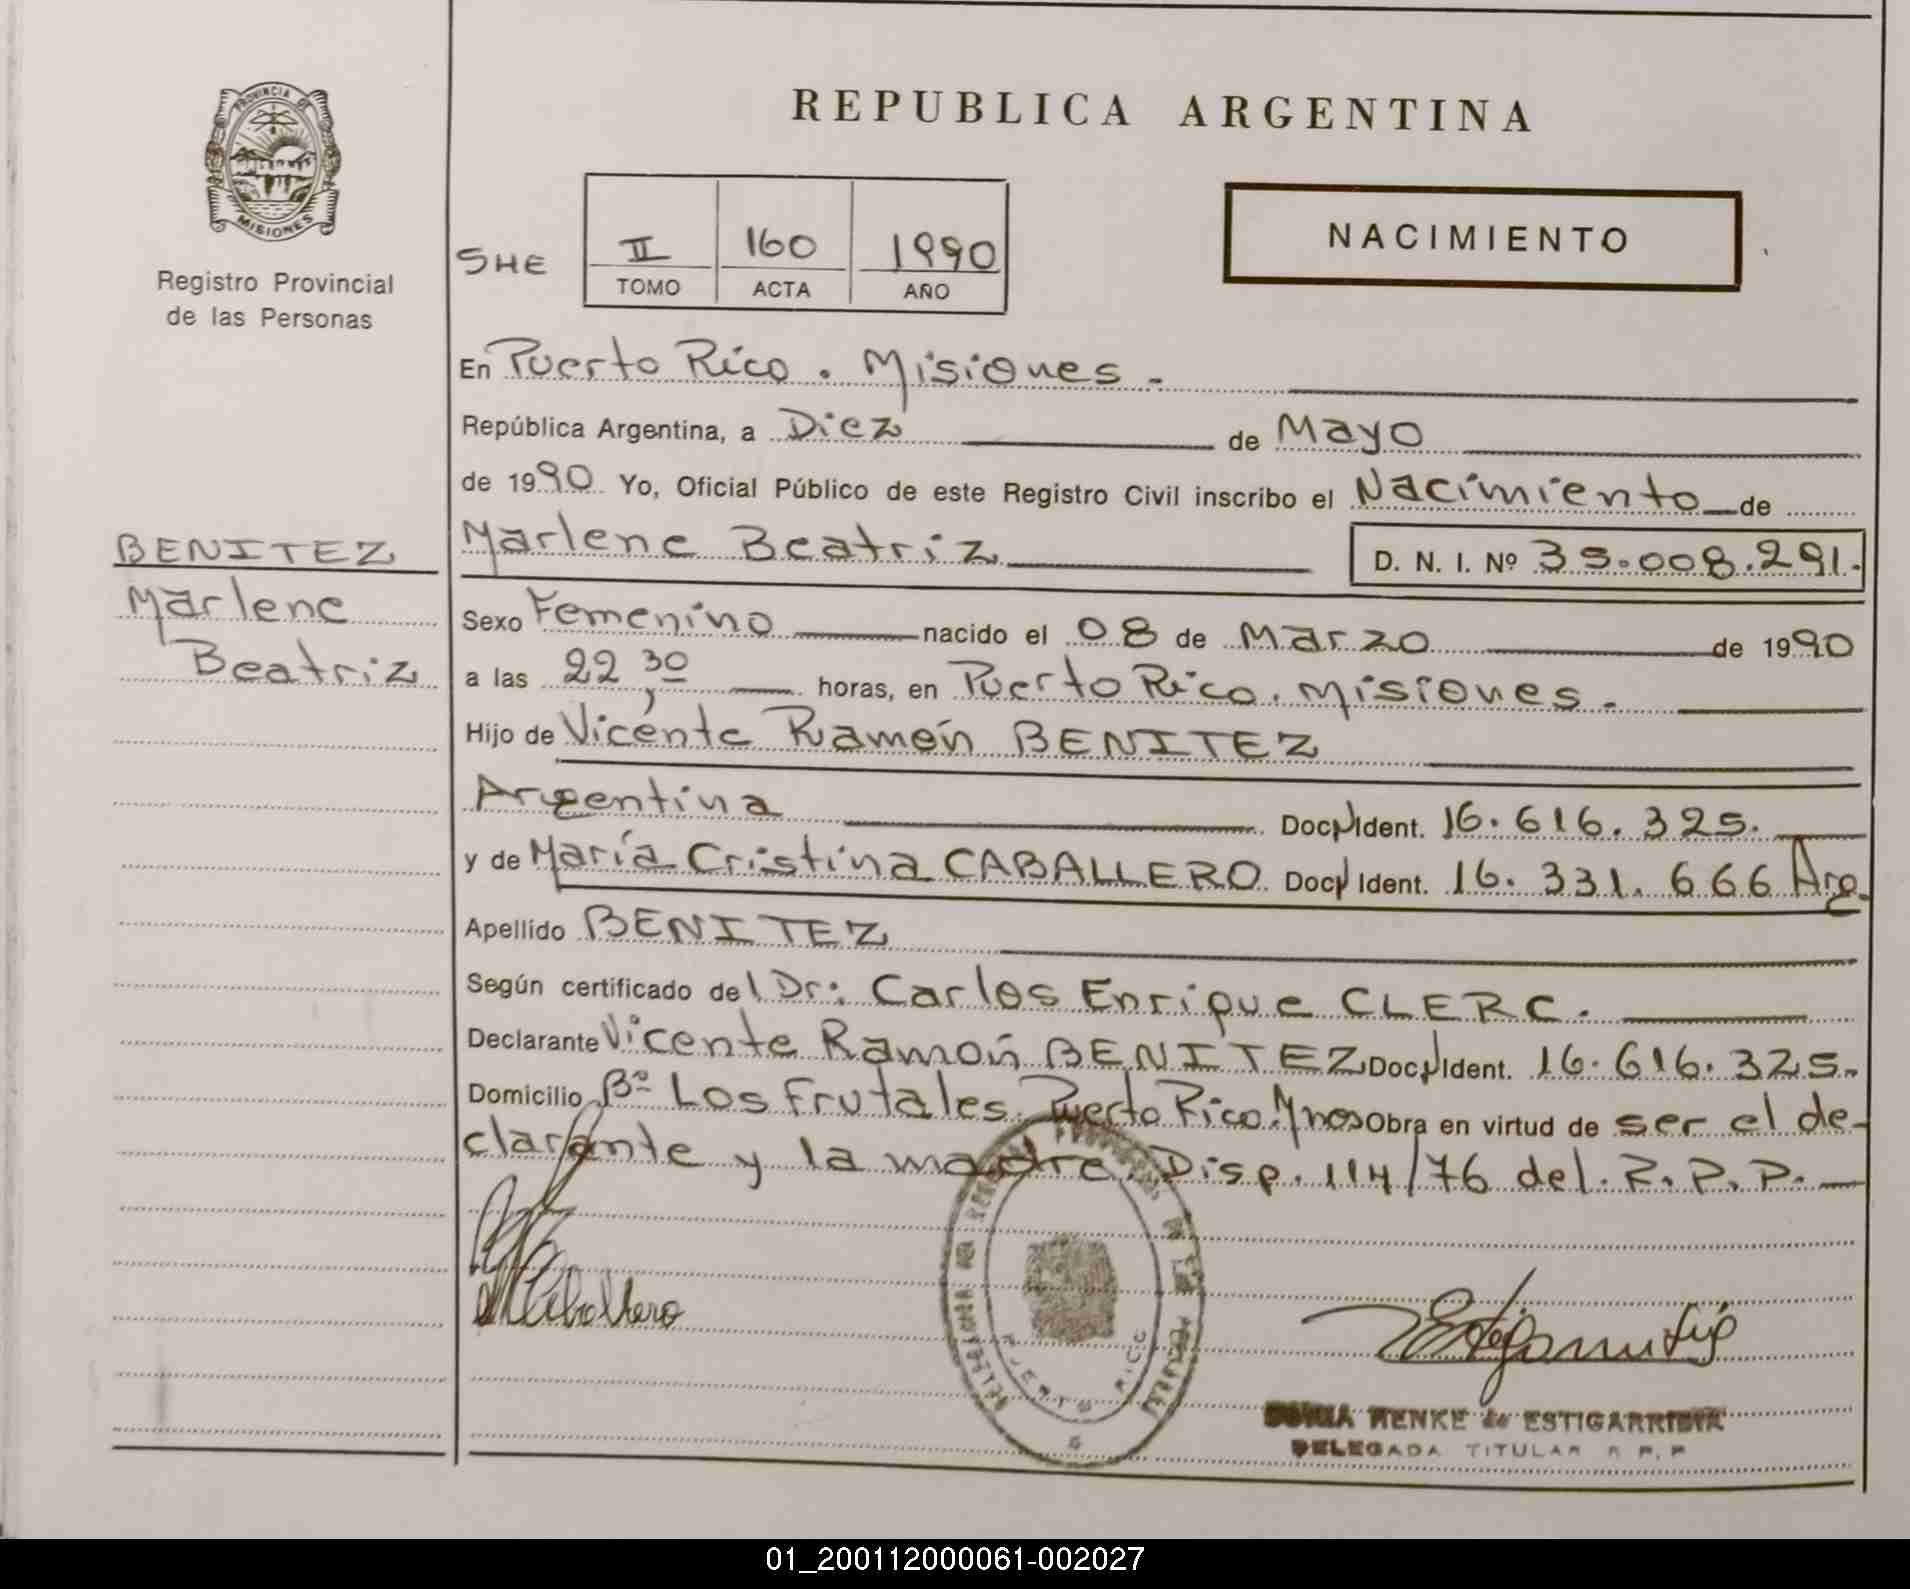 PROVINCIA DE
MISIONES
Registro Provincial
de las Personas
BENITEZ
Marlene
Beatriz
REPUBLICA ARGENTINA
SHE
II 160 1990
TOMO ACTA AÑO
NACIMIENTO
En Puerto Rico. Misiones.-
República Argentina, a Diez de Mayo
de 1990 Yo, Oficial Público de este Registro Civil inscribo el Nacimiento de
Marlene Beatriz D. N. I. Nº 35.008.291.
Sexo Femenino nacido el 08 de Marzo de 1990
a las 22,30 horas, en Puerto Rico. Misiones.
Hijo de Vicente Ramón BENITEZ
Argentina Doc. Ident. 16.616.325.
y de María Cristina CABALLERO Doc. Ident. 16.331.666 Arg.
Apellido BENITEZ
Según certificado del Dr: Carlos Enrique CLERC.
Declarante Vicente Ramón BENITEZ Doc. Ident. 16.616.325.
Domicilio Bº Los Frutales. Puerto Rico. Mnes Obra en virtud de ser el de-
clarante y la madre. Disp. 114/76 del. R.P.P.
MCaballero
PUERTO RICO
HENKE de ESTIGARRIBIA
DELEGADA TITULAR R.P.P
01_200112000061-002027